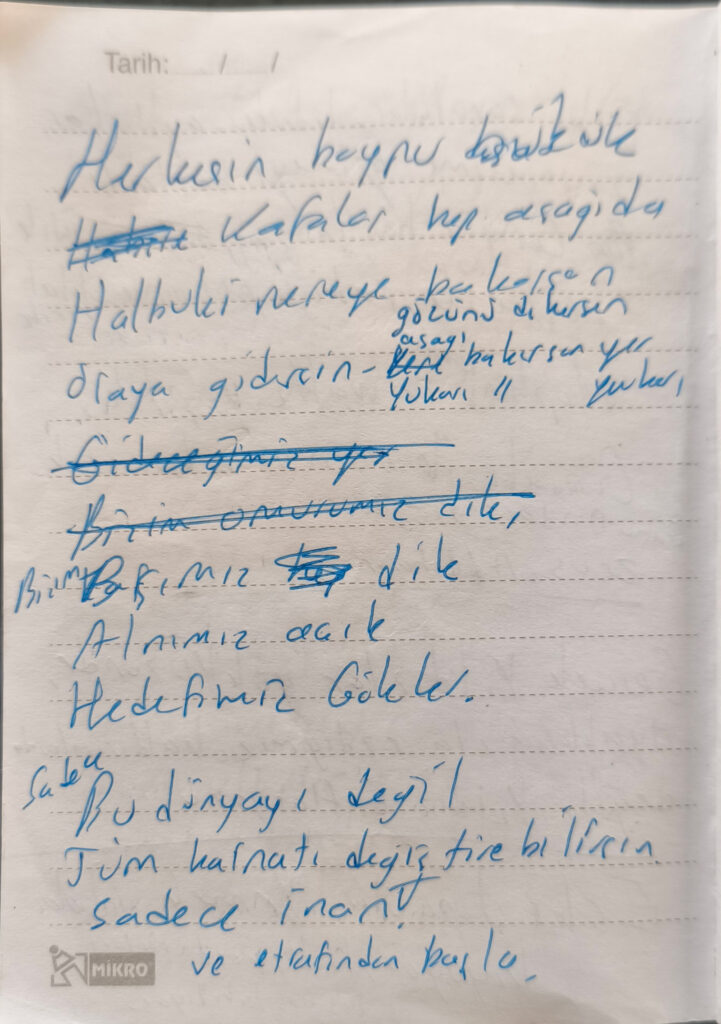 Tarih: / /
Herkesin boynu bükük
Kafalar hep aşağıda
Halbuki nereye bakarsan
gözünü dikersen
oraya gidersin - aşağı bakarsan yer
Yukarı " yukarı
Gideceğimiz yer
Bizim omurumuz dik,
Bizim Başımız dik
Alnımız açık
Hedefimiz Gökler.
Sadece
Bu dünyayı değil
Tüm kainatı değiştirebilirsin
sadece inan!
ve etrafından başla.
MİKRO